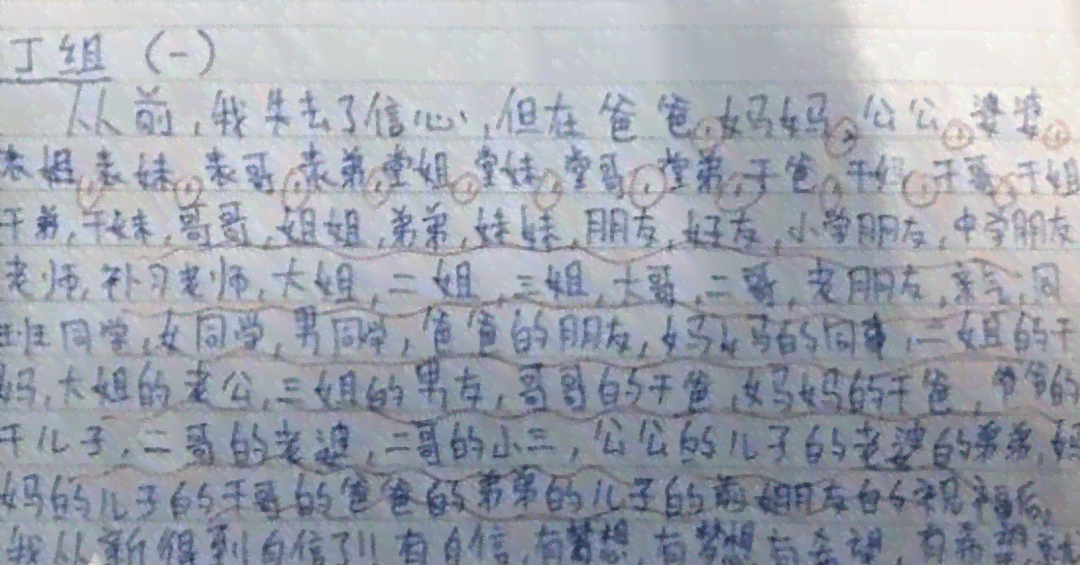 丁组（一）
从前，我失去了信心，但在爸爸，妈妈，公公，婆婆，
表姐，表妹，表哥，表弟，堂姐，堂妹，堂哥，堂弟，干爸，干妈，干哥，干姐
干弟，干妹，哥哥，姐姐，弟弟，妹妹，朋友，好友，小学朋友，中学朋友
老师，补习老师，大姐，二姐，三姐，大哥，二哥，老朋友，亲家，同
班同学，女同学，男同学，爸爸的朋友，妈妈的同事，二姐的干
妈，大姐的老公，三姐的男友，哥哥的干爸，妈妈的干爸，爷爷的
干儿子，二哥的老婆，二哥的小三，公公的儿子的老婆的弟弟，妈
妈的儿子的干哥的爸爸的弟弟的儿子的前女朋友的祝福后，
我从新得到自信了！！有自信，有梦想，有梦想有希望，有希望就